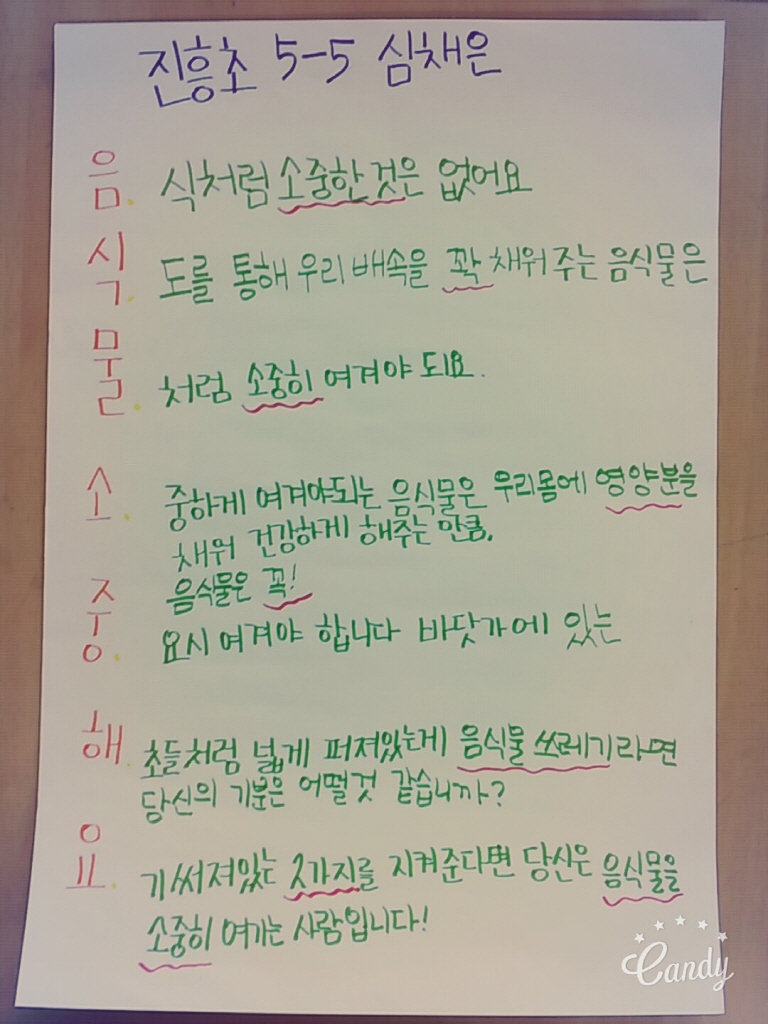 진흥초 5-5 심채은
음. 식처럼 소중한것은 없어요
식. 도를 통해 우리 배속을 꽉 채워 주는 음식물은
물. 처럼 소중히 여겨야 되요.
소. 중하게 여겨야되는 음식물은 우리몸에 영양분을
채워 건강하게 해주는 만큼,
음식물은 꼭!
중. 요시 여겨야 합니다 바닷가에 있는
해. 초들처럼 넓게 퍼져있는게 음식물 쓰레기라면
당신의 기분은 어떨것 같습니까?
요. 기써져있는 2가지를 지켜준다면 당신은 음식물을
소중히 여기는 사람입니다!
Candy